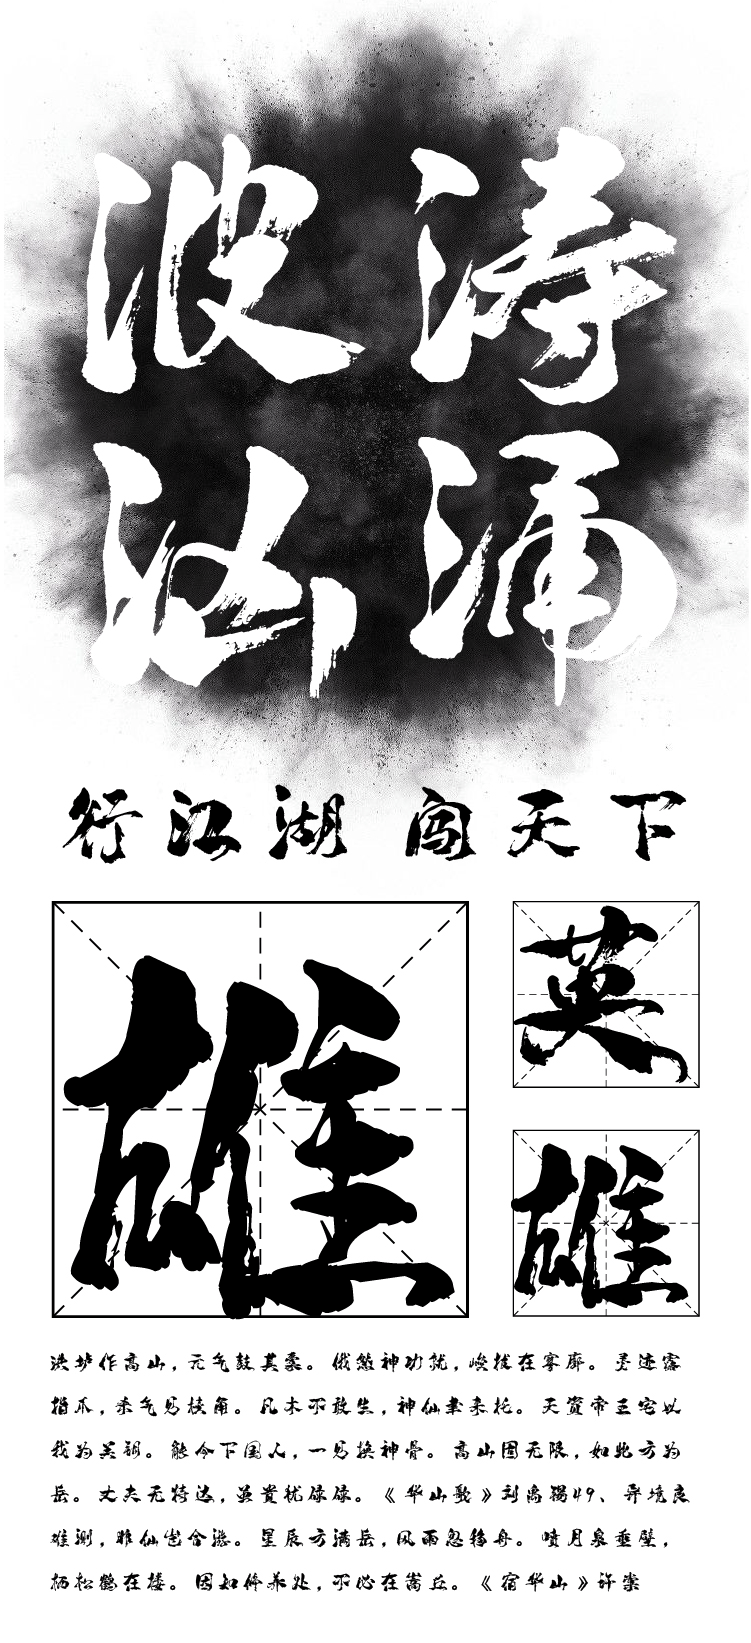 波涛
汹涌
行江湖 闯天下
雄
英
雄
洪炉作高山,元气鼓其橐。俄然神功就,峻拔在寥廓。灵迹露
指爪,杀气见棱角。凡木不敢生,神仙聿来托。天资帝王宅以
我为关钥。能令下国人,一见换神骨。高山固无限,如此方为
岳。丈夫无特达,虽贵犹碌碌。《华山歌》刘禹锡49、异境良
难测,非仙岂合游。星辰方满岳,风雨忽移舟。喷月泉垂壁,
栖松鹤在楼。因知修养处,不必在嵩丘。《宿华山》许棠